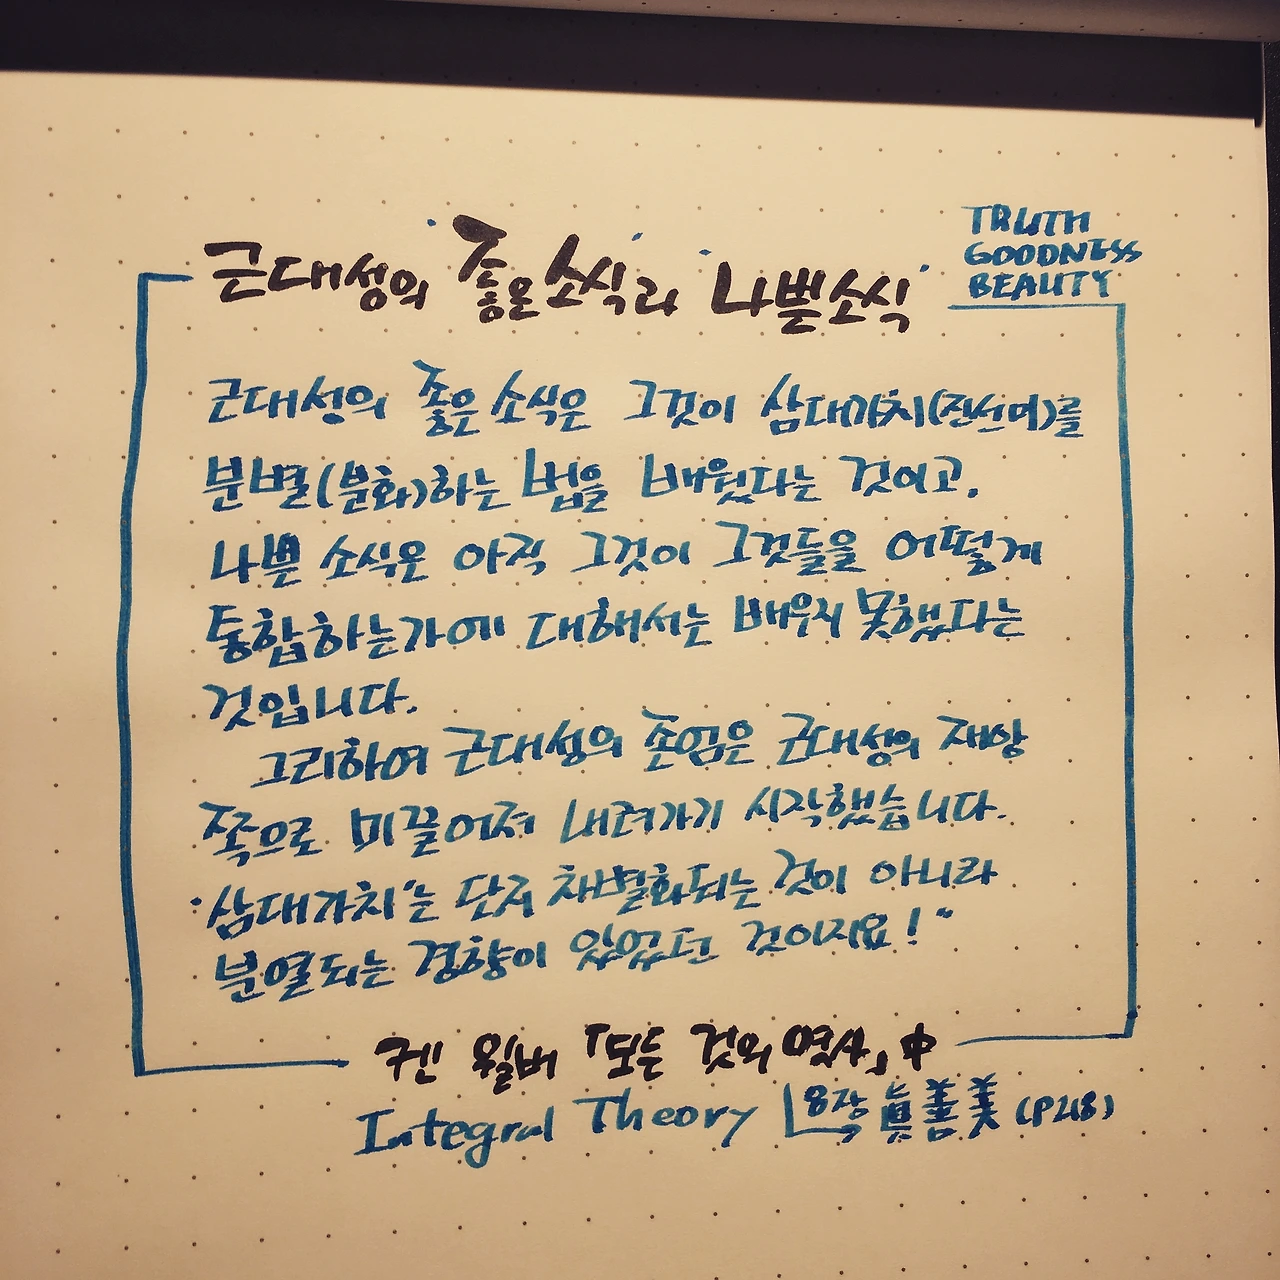 근대성의 '좋은 소식'과 '나쁜 소식'
TRUTH
GOODNESS
BEAUTY
근대성의 좋은 소식은 그것이 삼대가치(진선미)를
분별(분화)하는 법을 배웠다는 것이고,
나쁜 소식은 아직 그것이 그것들을 어떻게
통합하는가에 대해서는 배우지 못했다는
것입니다.
그리하여 근대성의 존엄은 근대성의 재앙
쪽으로 미끌어져 내려가기 시작했습니다.
'삼대가치'는 단지 차별화되는 것이 아니라
분열되는 경향이 있었던 것이지요!"
켄 윌버 「모든 것의 역사」 中
Integral Theory 8장 眞善美 (P218)